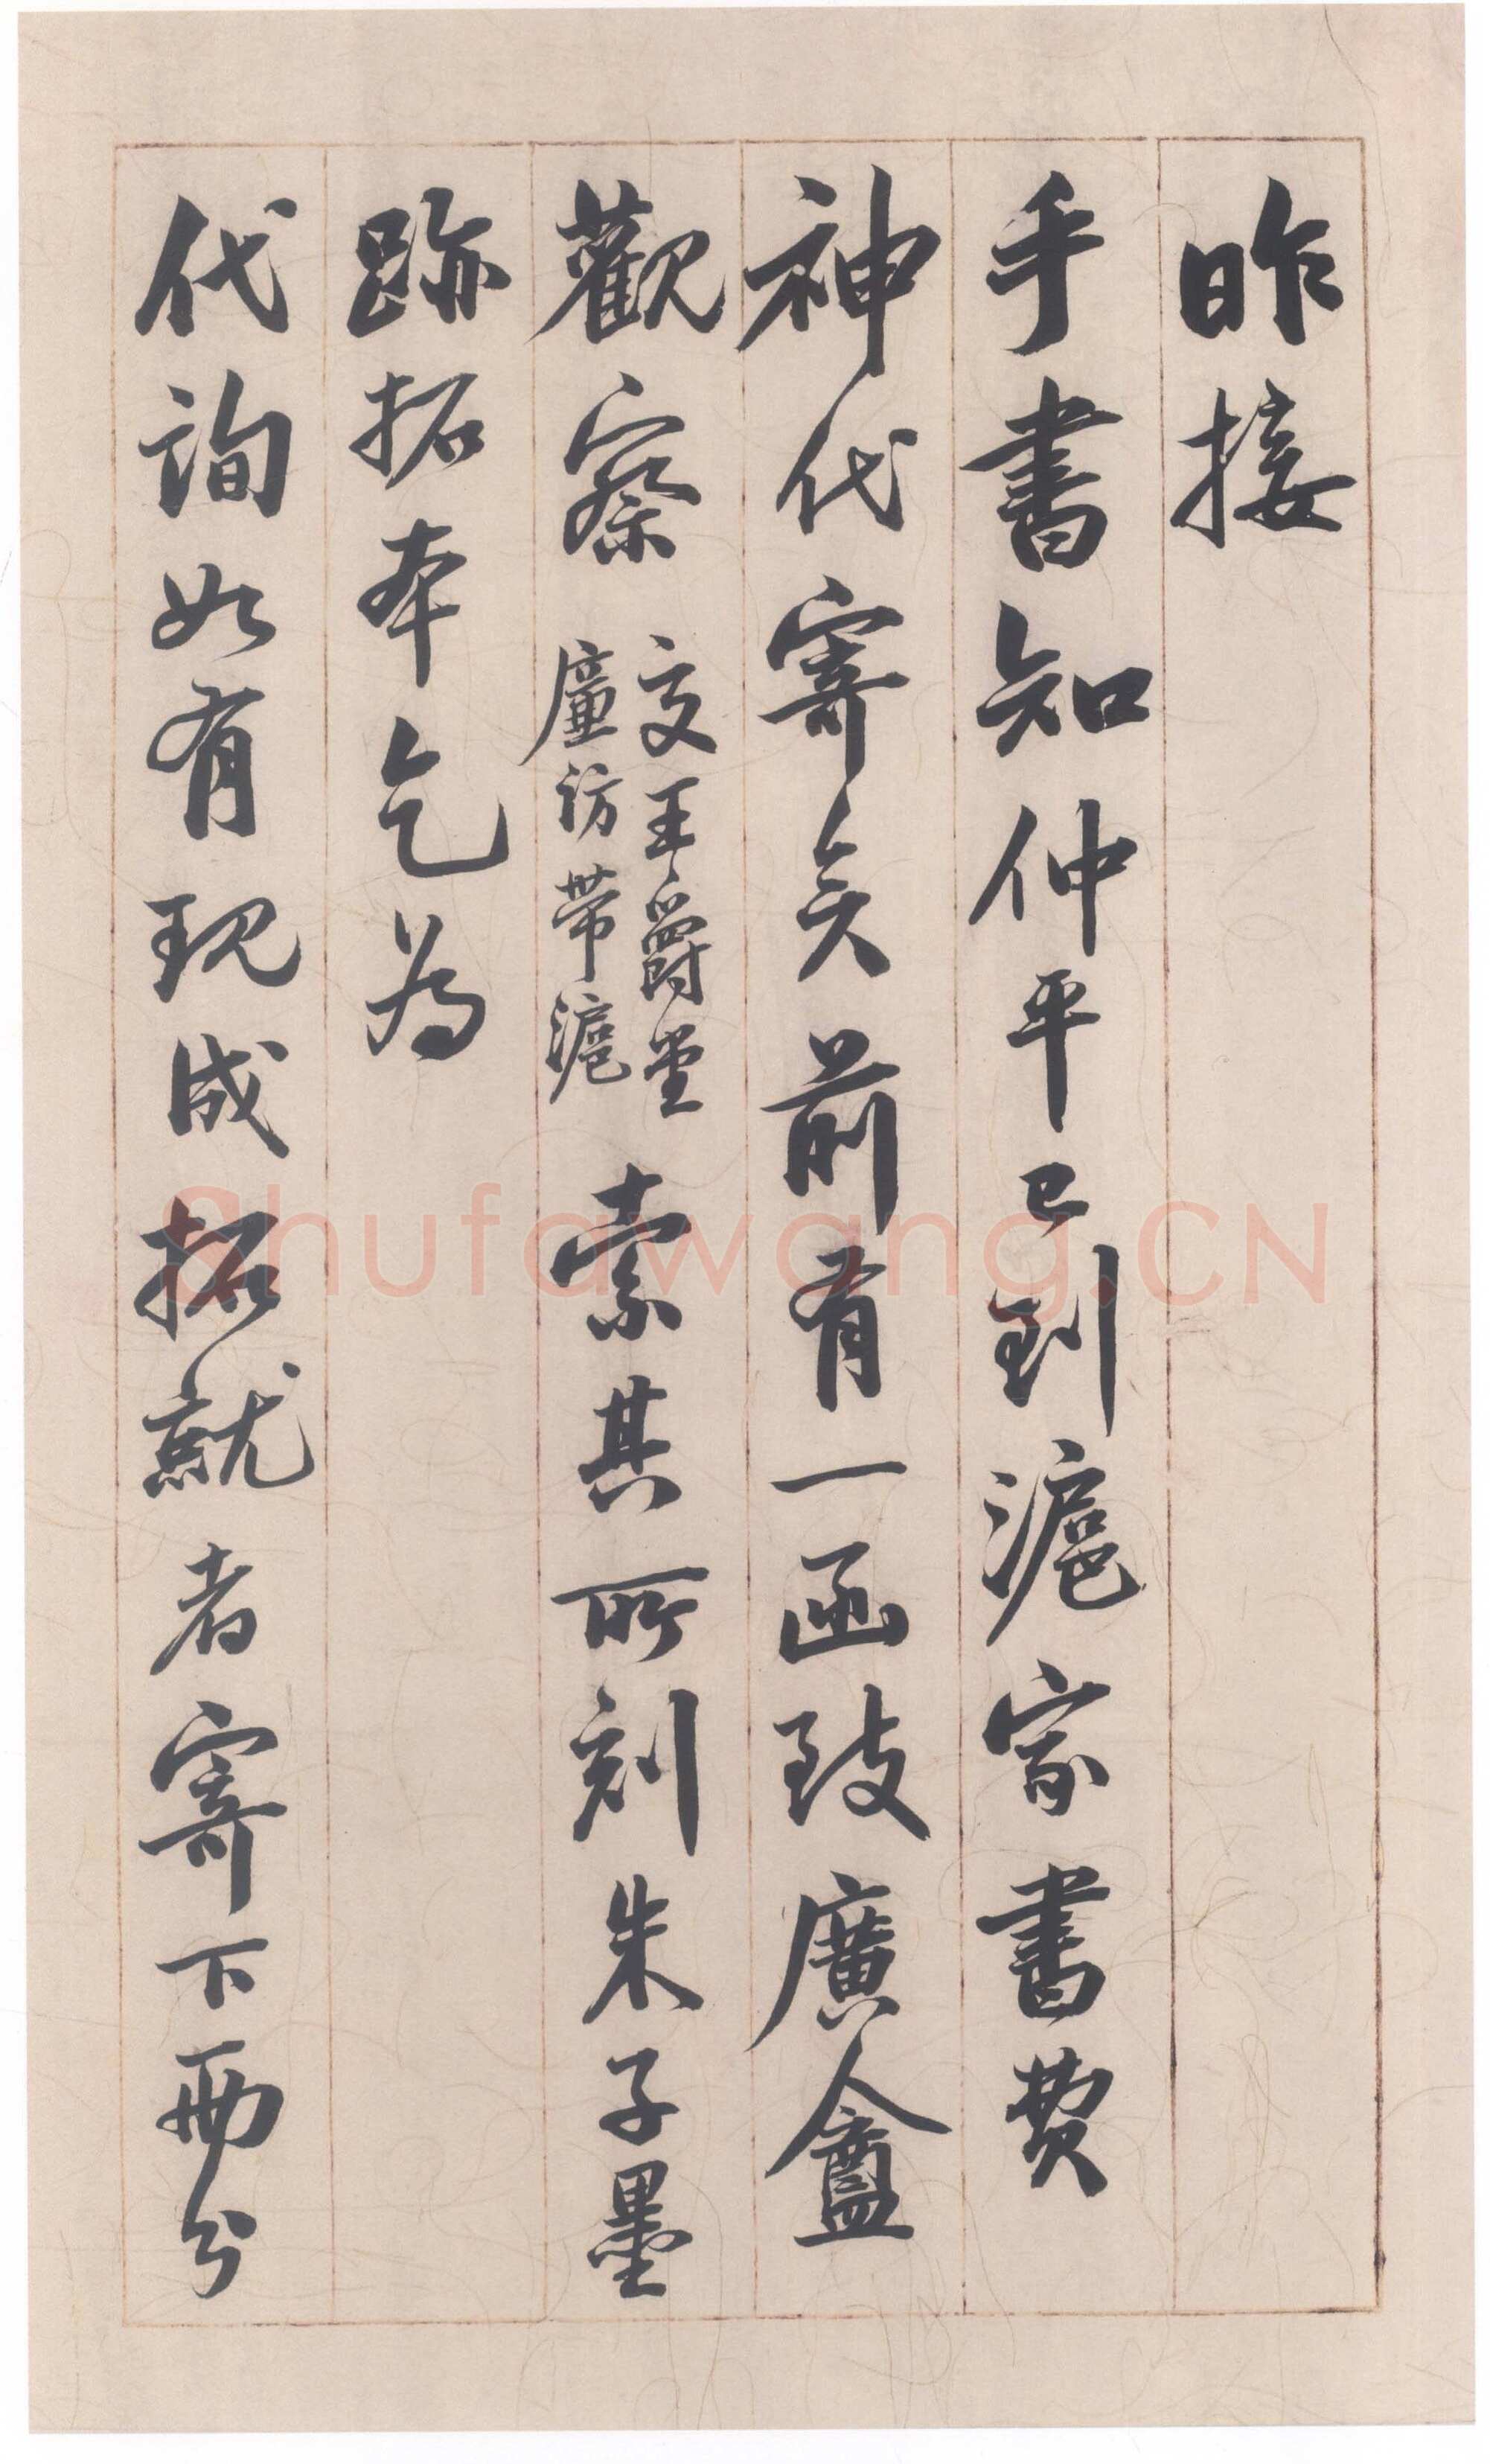 昨接
手書知仲平已到滬家書費
神代寄矣前有一函致廣盦
觀察
交王爵堂
廉訪帶滬
索其所刻朱子墨
跡拓本乞為
代詢如有現成拓就者寄下兩分
Shufawang.CN